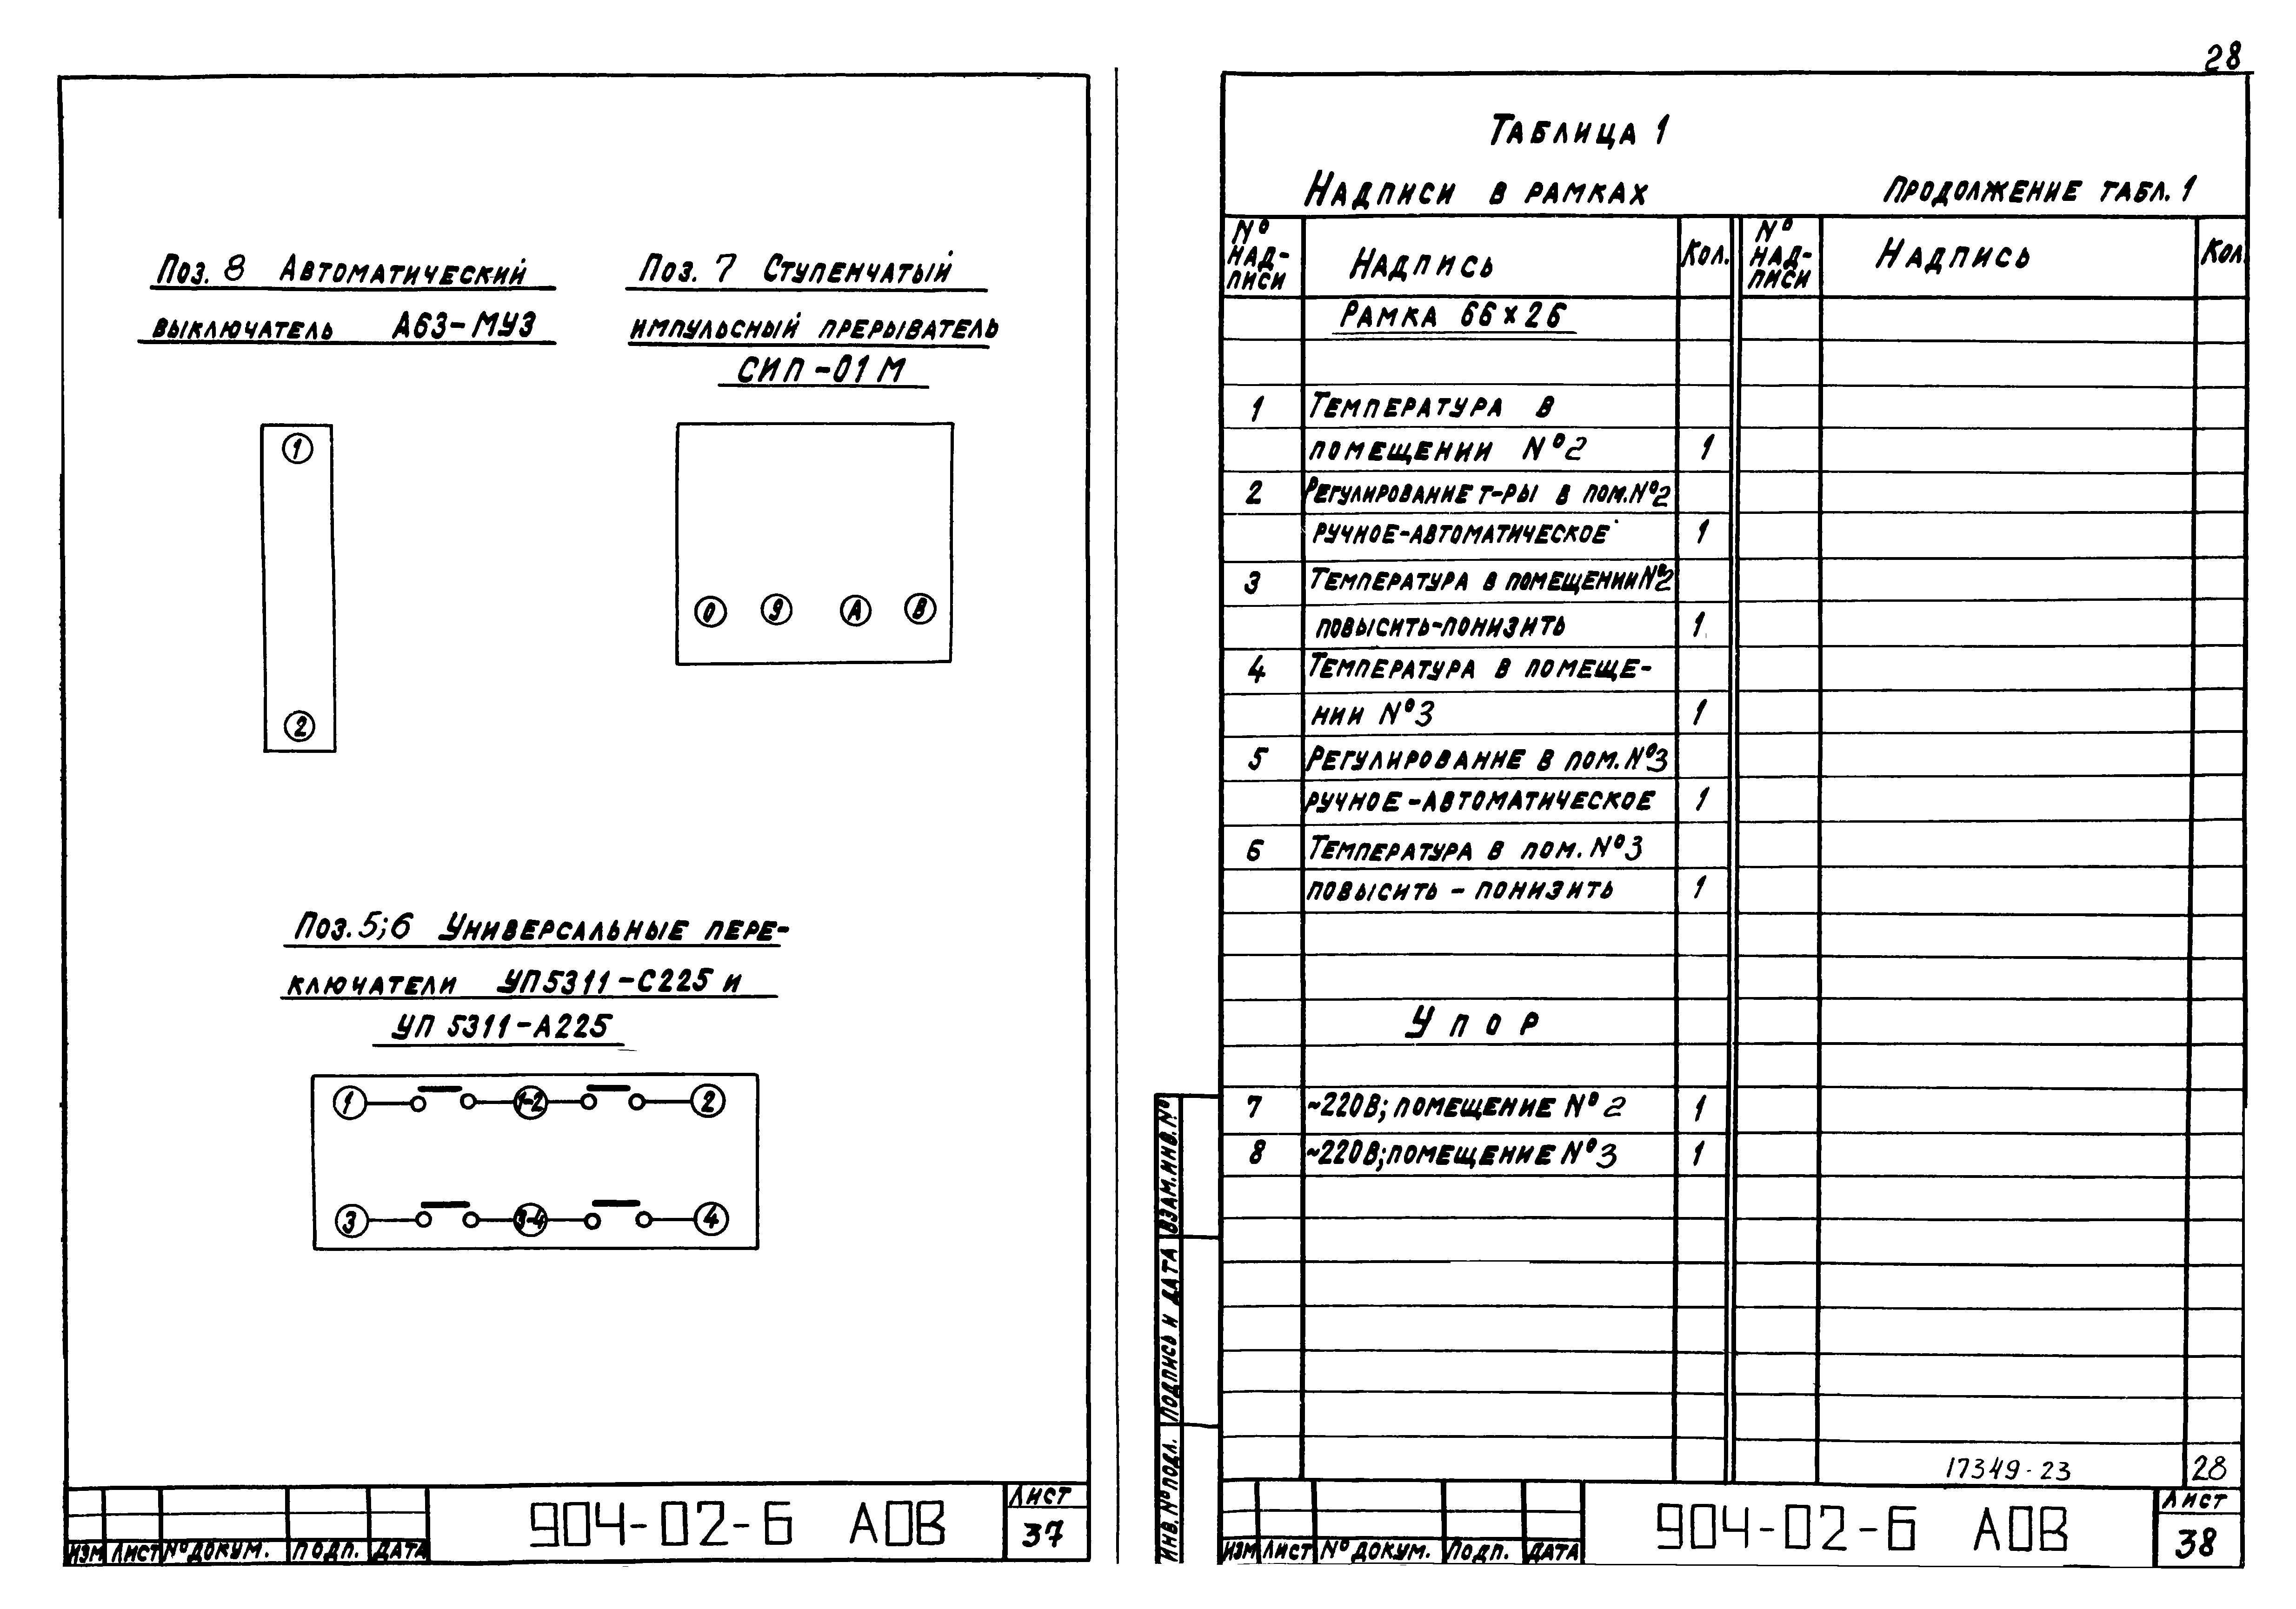 28
Поз. 8 Автоматический
выключатель А63-МУ3
Поз. 7 Ступенчатый
импульсный прерыватель
СИП-01М
1
2
0 9 А В
Поз. 5;6 Универсальные пере-
ключатели УП5311-С225 и
УП 5311-А225
1 1-2 2
3 3-4 4
Изм Лист № докум. Подп. Дата
904-02-6 АОВ
Лист
37
Таблица 1
Надписи в рамках
Продолжение табл. 1
№ надписи Надпись Кол. № надписи Надпись Кол.
Рамка 66×26
1 Температура в
помещении №2 1
2 Регулирование т-ры в пом. №2
ручное-автоматическое 1
3 Температура в помещении №2
повысить-понизить 1
4 Температура в помеще-
нии №3 1
5 Регулирование в пом. №3
ручное-автоматическое 1
6 Температура в пом. №3
повысить - понизить 1
Упор
7 ~220В; помещение №2 1
8 ~220В; помещение №3 1
17349-23 28
Взам. инв. №
Подпись и дата
Инв. № подл.
Изм Лист № докум. Подп. Дата
904-02-6 АОВ
Лист
38